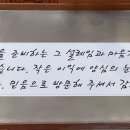 을 준비하는 그 설레임과 마음가
습니다. 작은 이익에 양심의 눈
, 믿음으로 방문해 주셔서 감